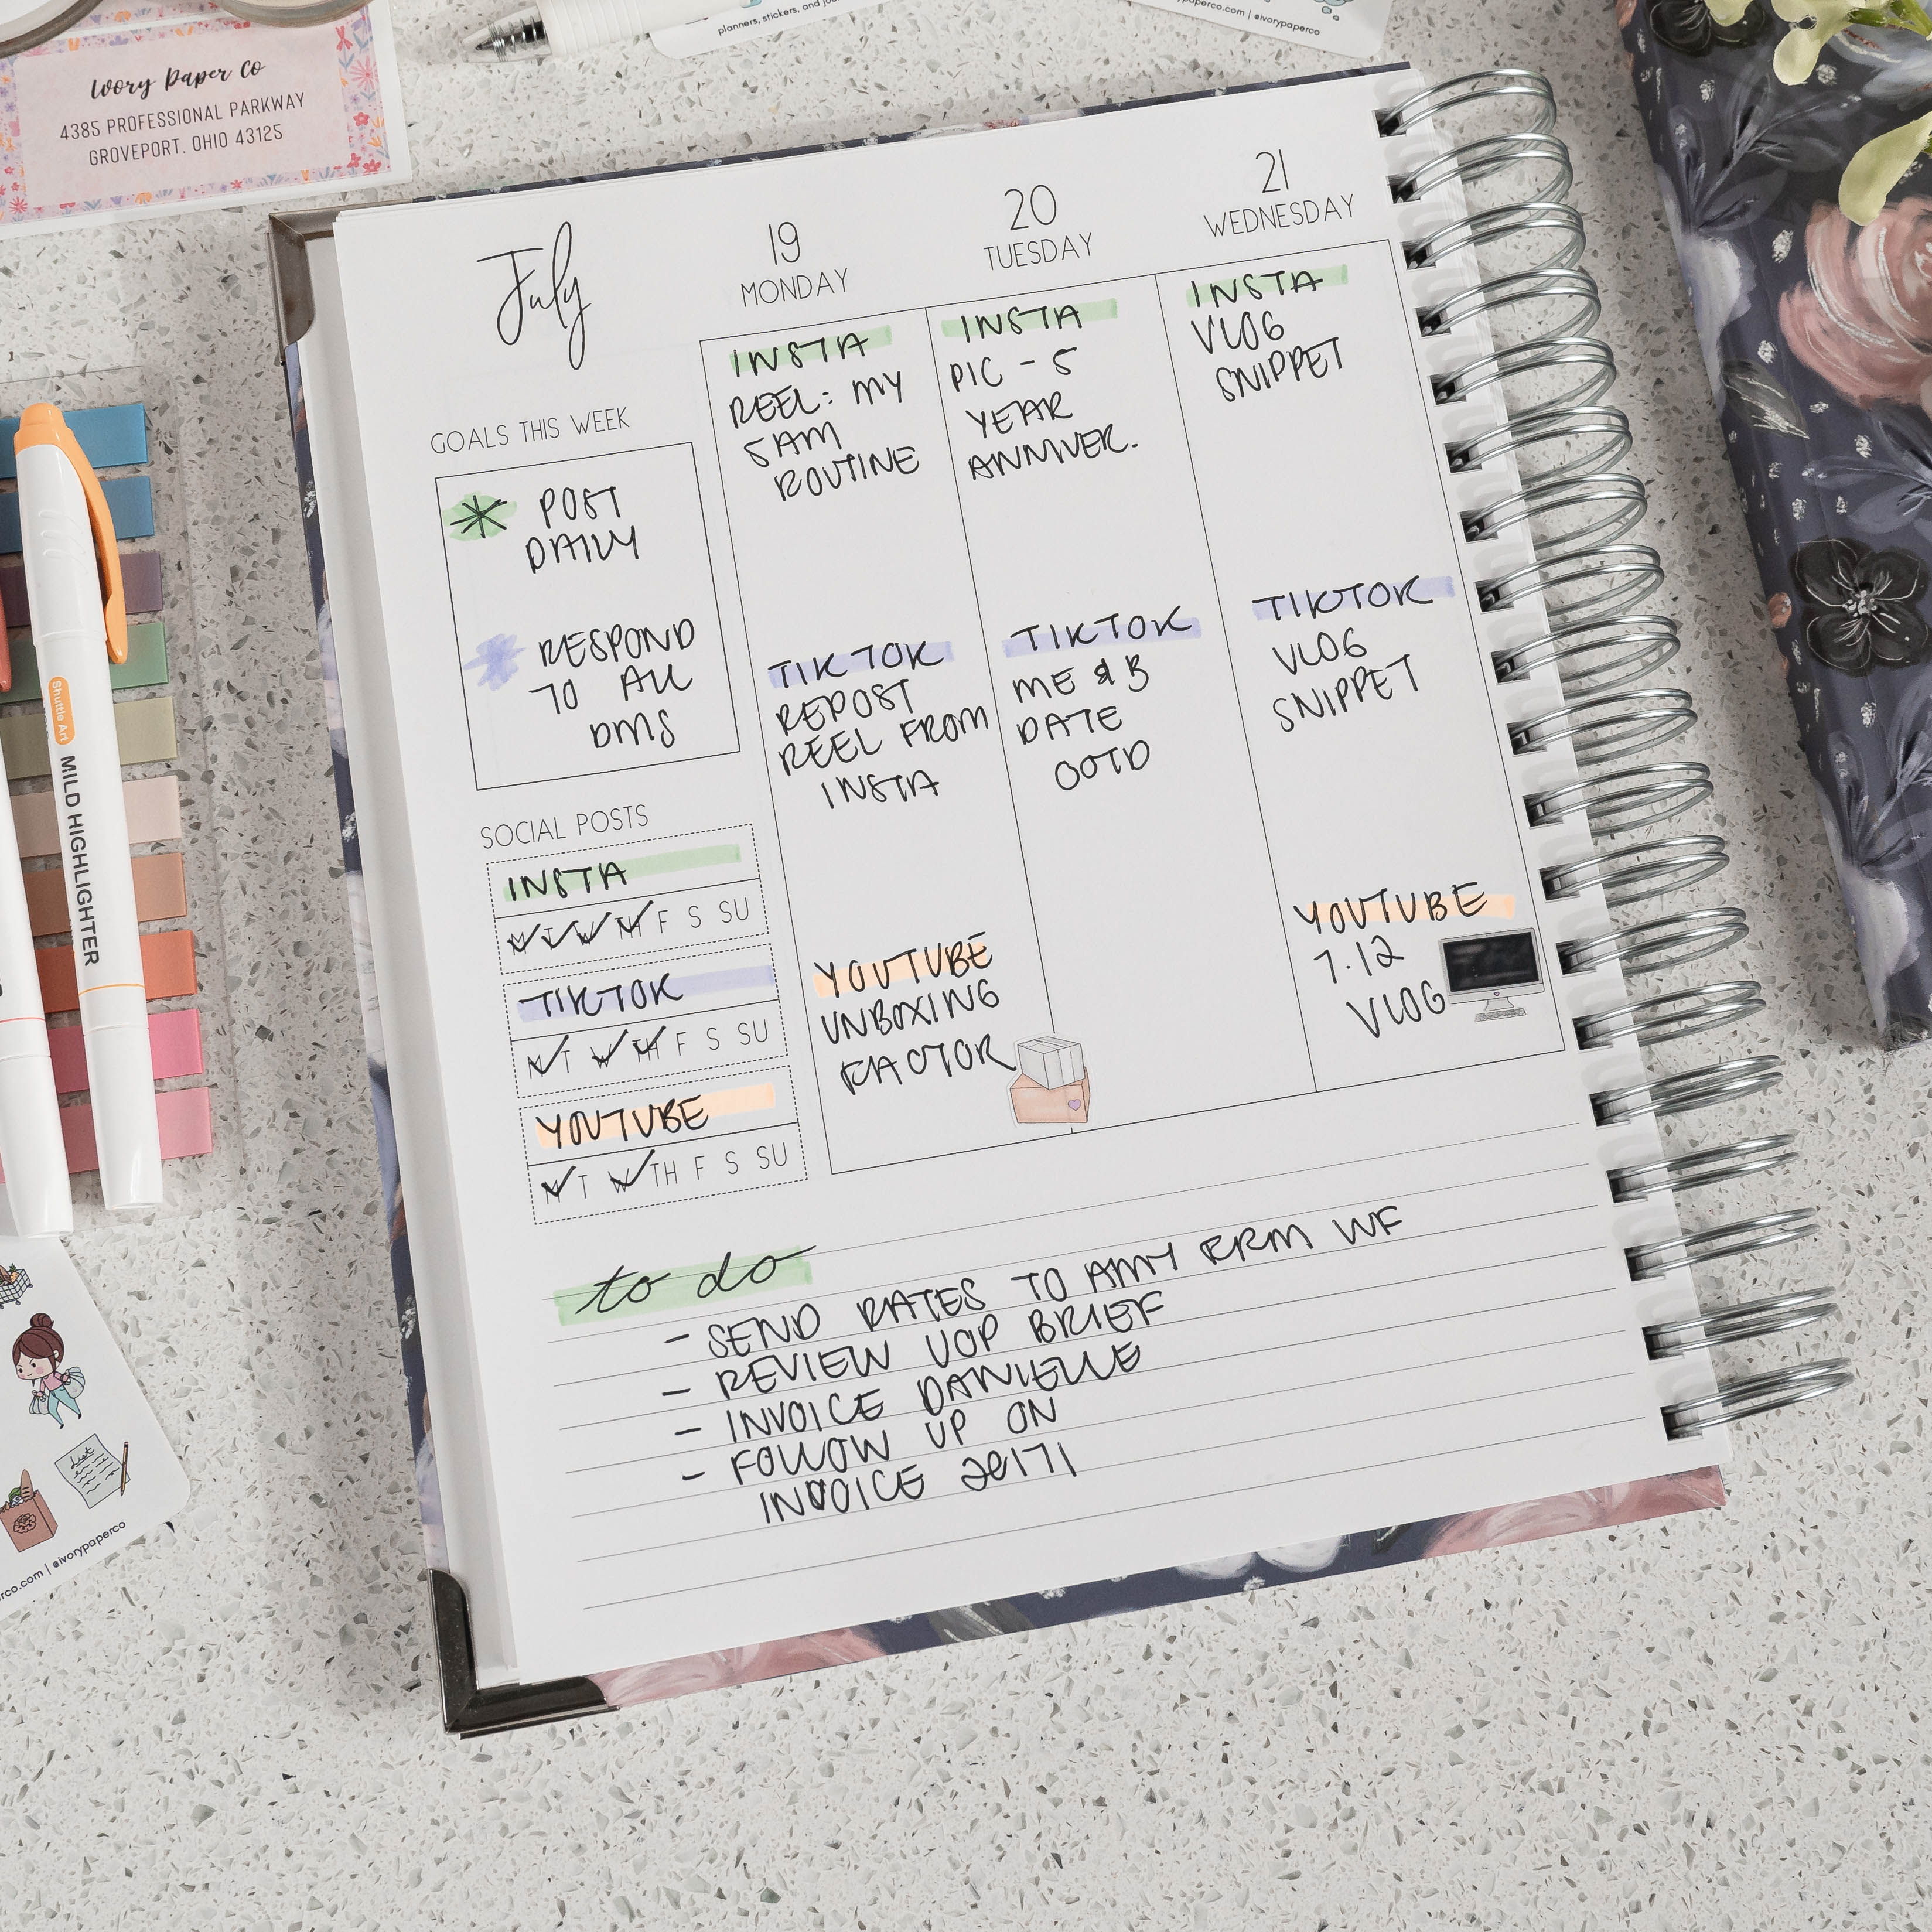 planners, stickers, and jou
perco.com | @ivorypaperco
Ivory Paper Co
4385 PROFESSIONAL PARKWAY
GROVEPORT. OHIO 43125
July
19
MONDAY
20
TUESDAY
21
WEDNESDAY
GOALS THIS WEEK
POST
DAILY
RESPOND
TO ALL
DMS
SOCIAL POSTS
INSTA
M T W TH F S SU
TIKTOK
M T W TH F S SU
YOUTUBE
M T W TH F S SU
INSTA
REEL: MY
5AM
ROUTINE
TIKTOK
REPOST
REEL FROM
INSTA
YOUTUBE
UNBOXING
FACTOR
INSTA
PIC - 5
YEAR
ANNIVER.
TIKTOK
ME & B
DATE
OOTD
INSTA
VLOG
SNIPPET
TIKTOK
VLOG
SNIPPET
YOUTUBE
7.12
VLOG
to do
- SEND RATES TO AMY WF
- REVIEW UOP BRIEF
- INVOICE DANIELLE
- FOLLOW UP ON
INVOICE
Shuttle Art
MILD HIGHLIGHTER
List
rco.com | @ivorypaperco